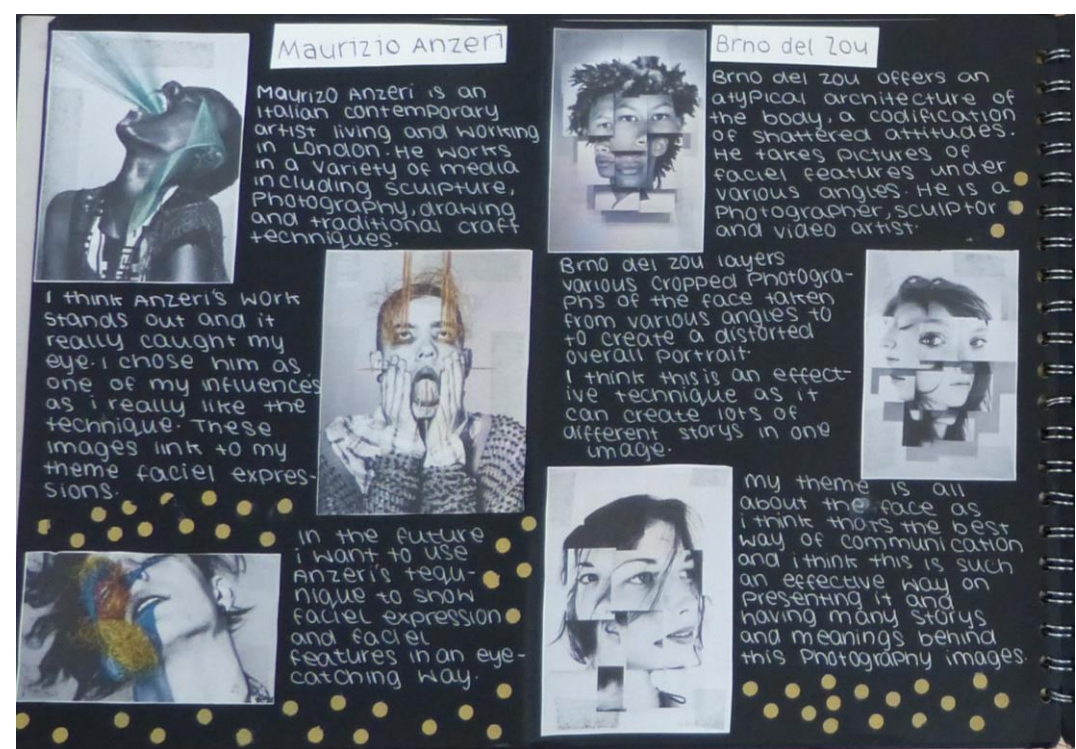 Maurizio Anzeri
Maurizo Anzeri is an
Italian contemporary
artist living and working
in London. He works
in a variety of media
including sculpture,
Photography, drawing
and traditional craft
techniques.
I think Anzeri's work
stands out and it
really caught my
eye. I chose him as
one of my influences
as i really like the
technique. These
images link to my
theme faciel expres-
sions.
In the future
i want to use
Anzeri's tequ-
nique to show
faciel expression
and faciel
features in an eye-
catching way.
Brno del Zou
Brno del Zou offers an
atypical architecture of
the body, a codification
of shattered attitudes.
He takes pictures of
faciel features under
various angles. He is a
Photographer, sculptor
and video artist.
Brno del Zou layers
various cropped Photogra-
phs of the face taken
from various angles to
to create a distorted
overall portrait.
I think this is an effect-
ive technique as it
can create lots of
different storys in one
image.
my theme is all
about the face as
i think thats the best
way of communication
and i think this is such
an effective way on
presenting it and
having many storys
and meanings behind
this Photography images.